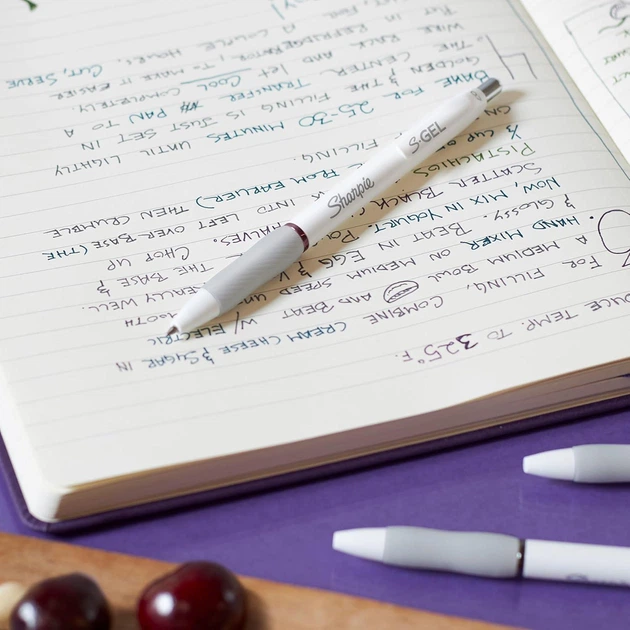 TEMP. TO 325°F.
FOR FILLING, COMBINE CREAM CHEESE & SUGAR IN
A MEDIUM BOWL AND BEAT W/ ELECTRIC
HAND MIXER ON MEDIUM SPEED
& GLOSSY. BEAT IN EGG & REALLY WELL.
NOW, MIX IN YOGURT. THE BASE &
SCATTER BLACK HALVES. CHOP UP
PISTACHIOS INTO LEFT OVER BASE (THE
½ CUP FROM EARLIER) THEN CRUMBLE
ON FILLING.
BAKE FOR 25-30 MINUTES UNTIL LIGHTLY
GOLDEN & THE FILLING IS JUST SET IN
THE CENTER. TRANSFER PAN TO A
WIRE RACK AND let COOL COMPLETELY
PUT IN REFRIDGERATOR, TO MAKE IT EASIER
A COUPLE HOURS. CUT, SERVE
Sharpie S·GEL